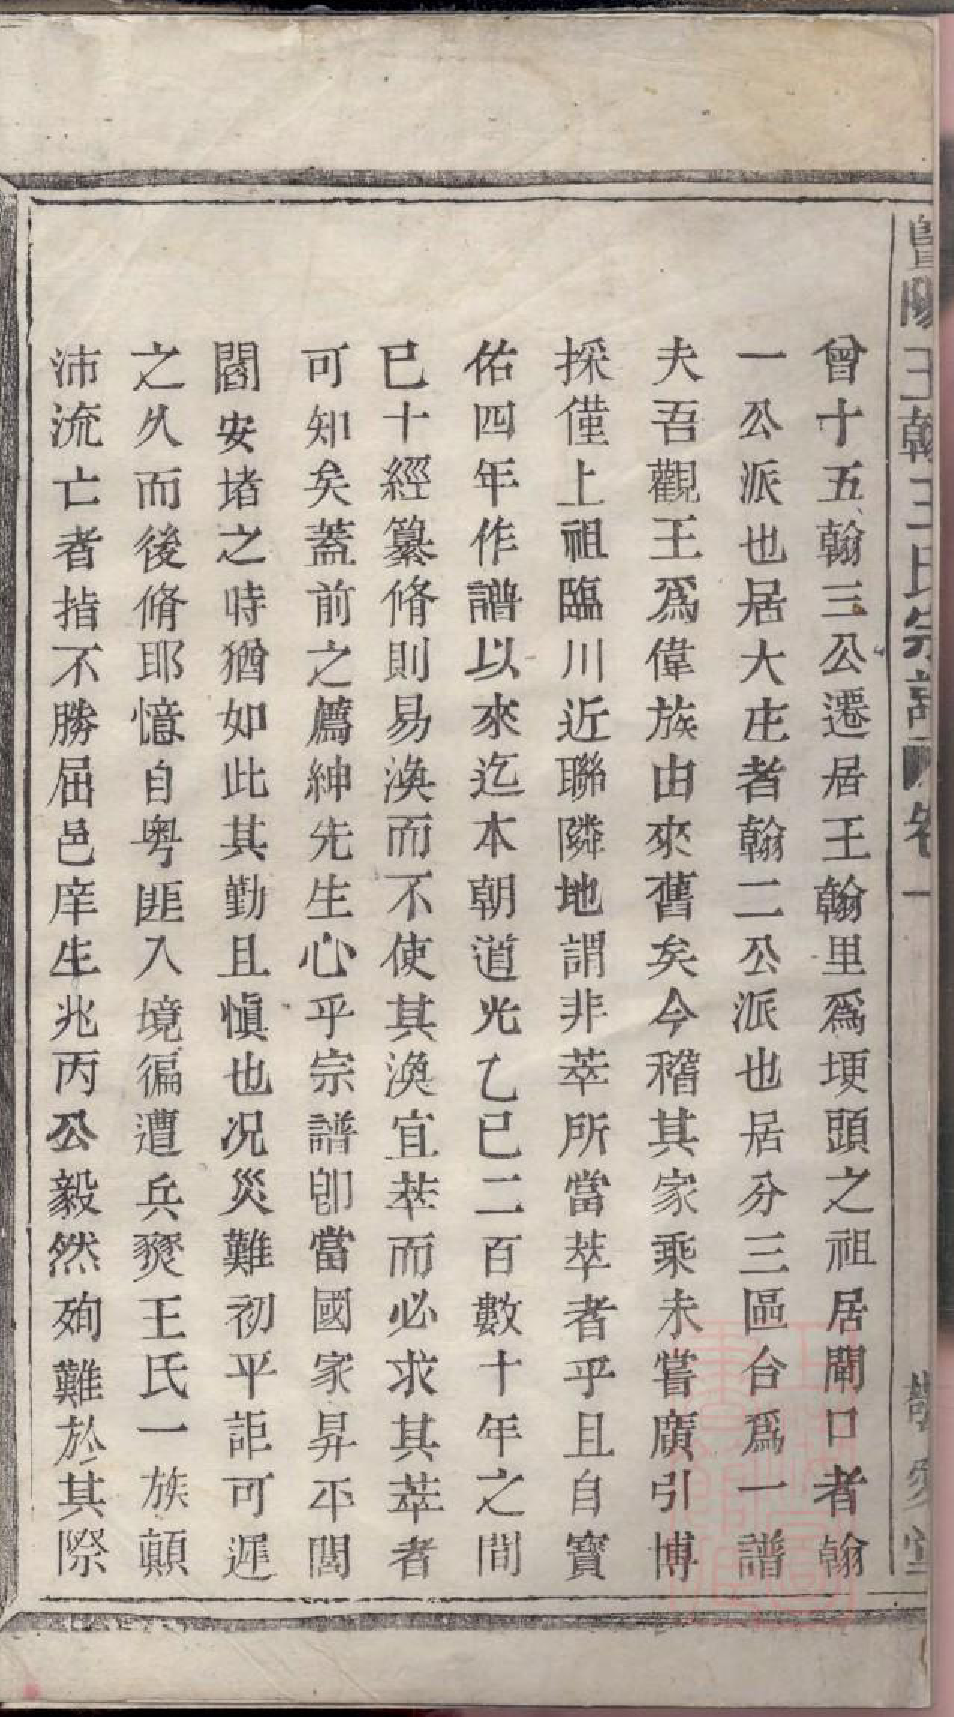 暨陽王翰王氏宗譜 卷一
曾十五翰三公遷居王翰里爲埂頭之祖居閘口者翰
一公派也居大庄者翰二公派也居分三區合爲一譜
夫吾觀王爲偉族由來舊矣今稽其家乘未嘗廣引博
採僅上祖臨川近聯隣地謂非萃所當萃者乎且自寳
佑四年作譜以來迄本朝道光乙巳二百數十年之間
已十經纂脩則易渙而不使其渙宜萃而必求其萃者
可知矣蓋前之薦紳先生心乎宗譜卽當國家昇平閭
閻安堵之時猶如此其勤且愼也况災難初平詎可遲
之久而後脩耶憶自粤匪入境徧遭兵燹王氏一族顛
沛流亡者指不勝屈邑庠生兆丙公毅然殉難於其際